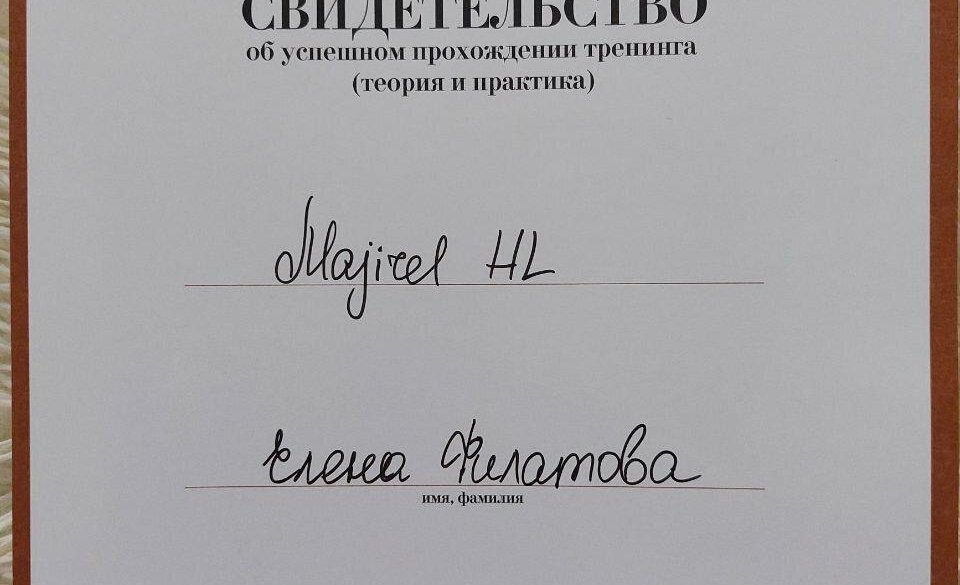 СВИДЕТЕЛЬСТВО
об успешном прохождении тренинга
(теория и практика)
Majirel HL
Елена Филатова
имя, фамилия